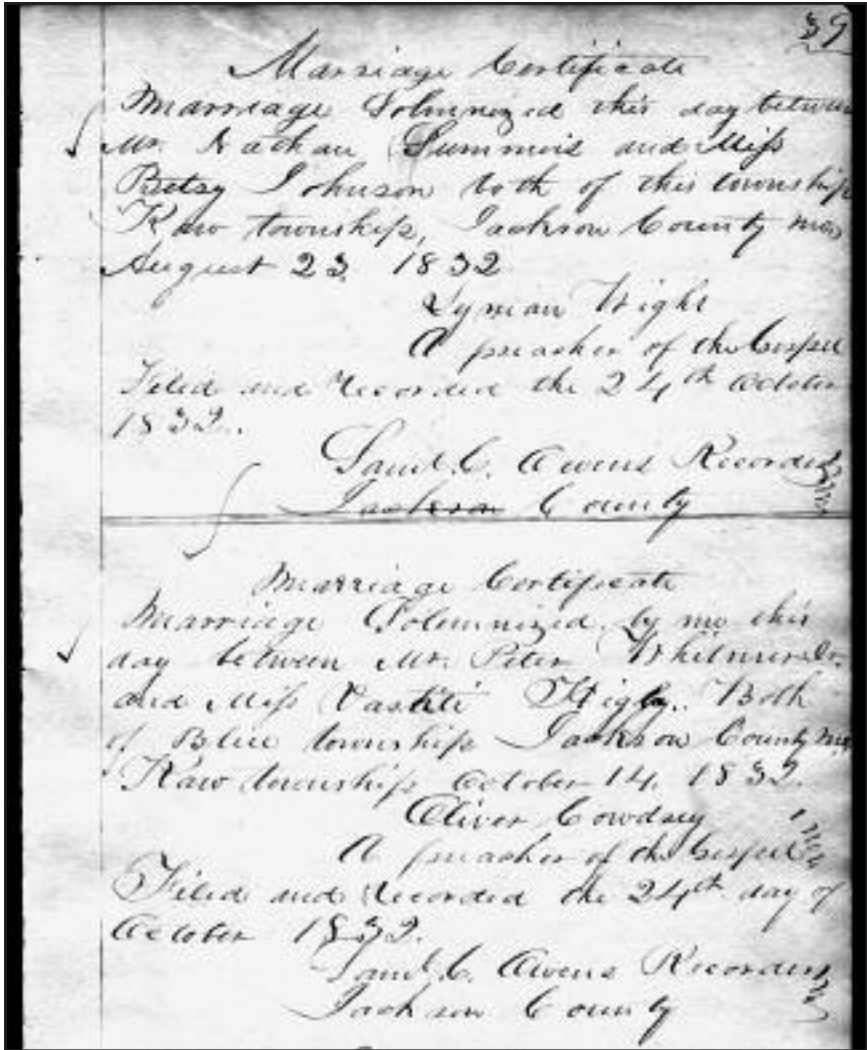 39
Marriage Certificate
Marriage Solumnized this day between
Mr. Nathan Summis and Miss
Betsy Johnson both of this township
Kaw township, Jackson County Mo,
August 23. 1832
Lyman Wight
A preacher of the Gospel
Filed and recorded the 24th October
1832.
Saml. C. Owens Recorder
Jackson County
Marriage Certificate
Marriage Solumnized by me this
day between Mr. Peter Whitmer Jr.
and Miss Vastité Higby. Both
of Blue township Jackson County Mo,
Kaw township October 14, 1832.
Oliver Cowdrey
A preacher of the Gospel
Filed and recorded the 24th day of
October 1832.
Saml. C. Owens Recorder
Jackson County